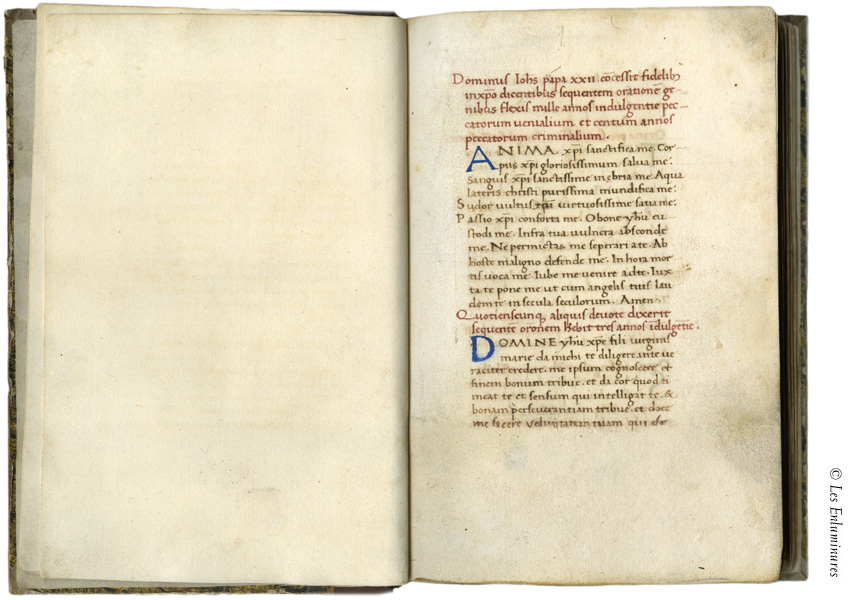 Dominus Iohs papa xxii cōcessit fidelib;
in xpō dicentibus sequentem orationē ge-
nibus flexis mille annos indulgentie pec-
catorum uenialium et centum annos
peccatorum criminalium.
ANIMA xpī sanctifica me. Cor
pus xpī gloriosissimum salua me:
Sanguis xpī sanctissime inebria me. Aqua
lateris christi purissima mundifica me:
Sudor uultus xpī uirtuosissime satia me:
Passio xpī conforta me. O bone yhū cu
stodi me. Infra tua uulnera absconde
me. Ne permictas me seperari a te. Ab
hoste maligno defende me. In hora mor
tis uoca me. Iube me uenire ad te. Iux
ta te pone me ut cum angelis tuis lau
dem te in secula seculorum. Amen.
Quotienscunq; aliquis deuote dixerit
sequentē orōnem hēbit tres annos īdulgētie.
DOMINE yhū xpē fili uirginis
marie da michi te diligere. in te ue
raciter credere. me ipsum cognoscere et
finem bonum tribue. et da cor quod ti
meat te et sensum qui intelligat te. &
bonam perseuerantiam tribue. et doce
me facere uoluntatem tuam quia
© Les Enluminures